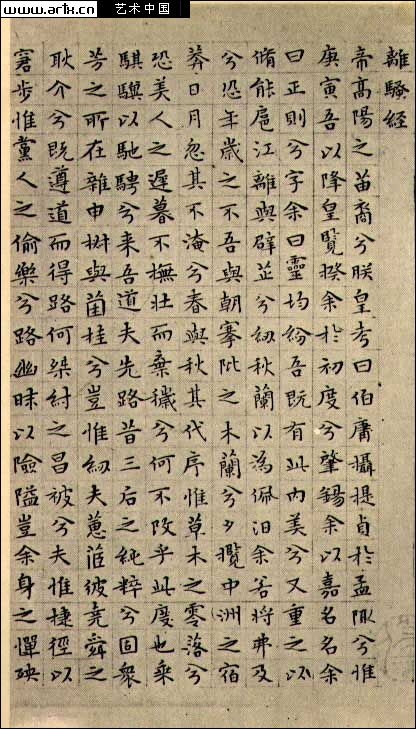 www.artx.cn 艺术中国
離騷經
帝高陽之苗裔兮朕皇考曰伯庸攝提貞於孟陬兮惟
庚寅吾以降皇覽揆余於初度兮肇錫余以嘉名名余
曰正則兮字余曰靈均紛吾既有此內美兮又重之以
脩能扈江離與辟芷兮紉秋蘭以為佩汨余若將弗及
兮恐年歲之不吾與朝搴阰之木蘭兮夕攬中洲之宿
莽日月忽其不淹兮春與秋其代序惟草木之零落兮
恐美人之遲暮不撫壯而棄穢兮何不改乎此度也乘
騏驥以馳騁兮来吾道夫先路昔三后之純粹兮固衆
芳之所在雜申椒與菌桂兮豈惟紉夫蕙茝彼堯舜之
耿介兮既遵道而得路何桀紂之昌被兮夫惟捷徑以
窘步惟黨人之偷樂兮路幽昧以險隘豈余身之憚殃